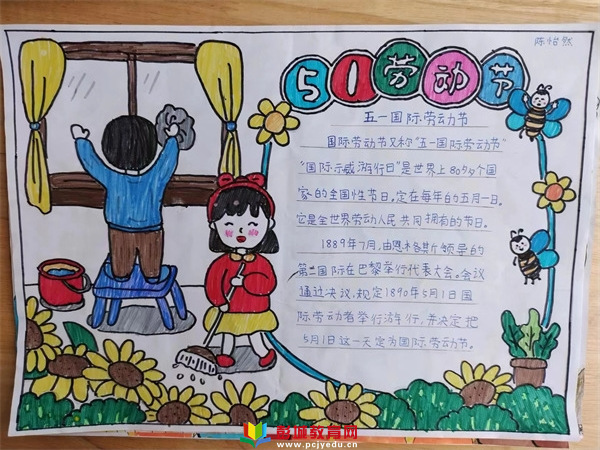 陈怡然
51劳动节
五一国际劳动节
国际劳动节又称"五一国际劳动节"
"国际示威游行日"是世界上80多个国
家的全国性节日。定在每年的五月一日。
它是全世界劳动人民共同拥有的节日。
1889年7月,由恩格斯领导的
第二国际在巴黎举行代表大会。会议
通过决议,规定1890年5月1日国
际劳动者举行游行,并决定把
5月1日这一天定为国际劳动节。
教育网
www.pcjyedu.cn